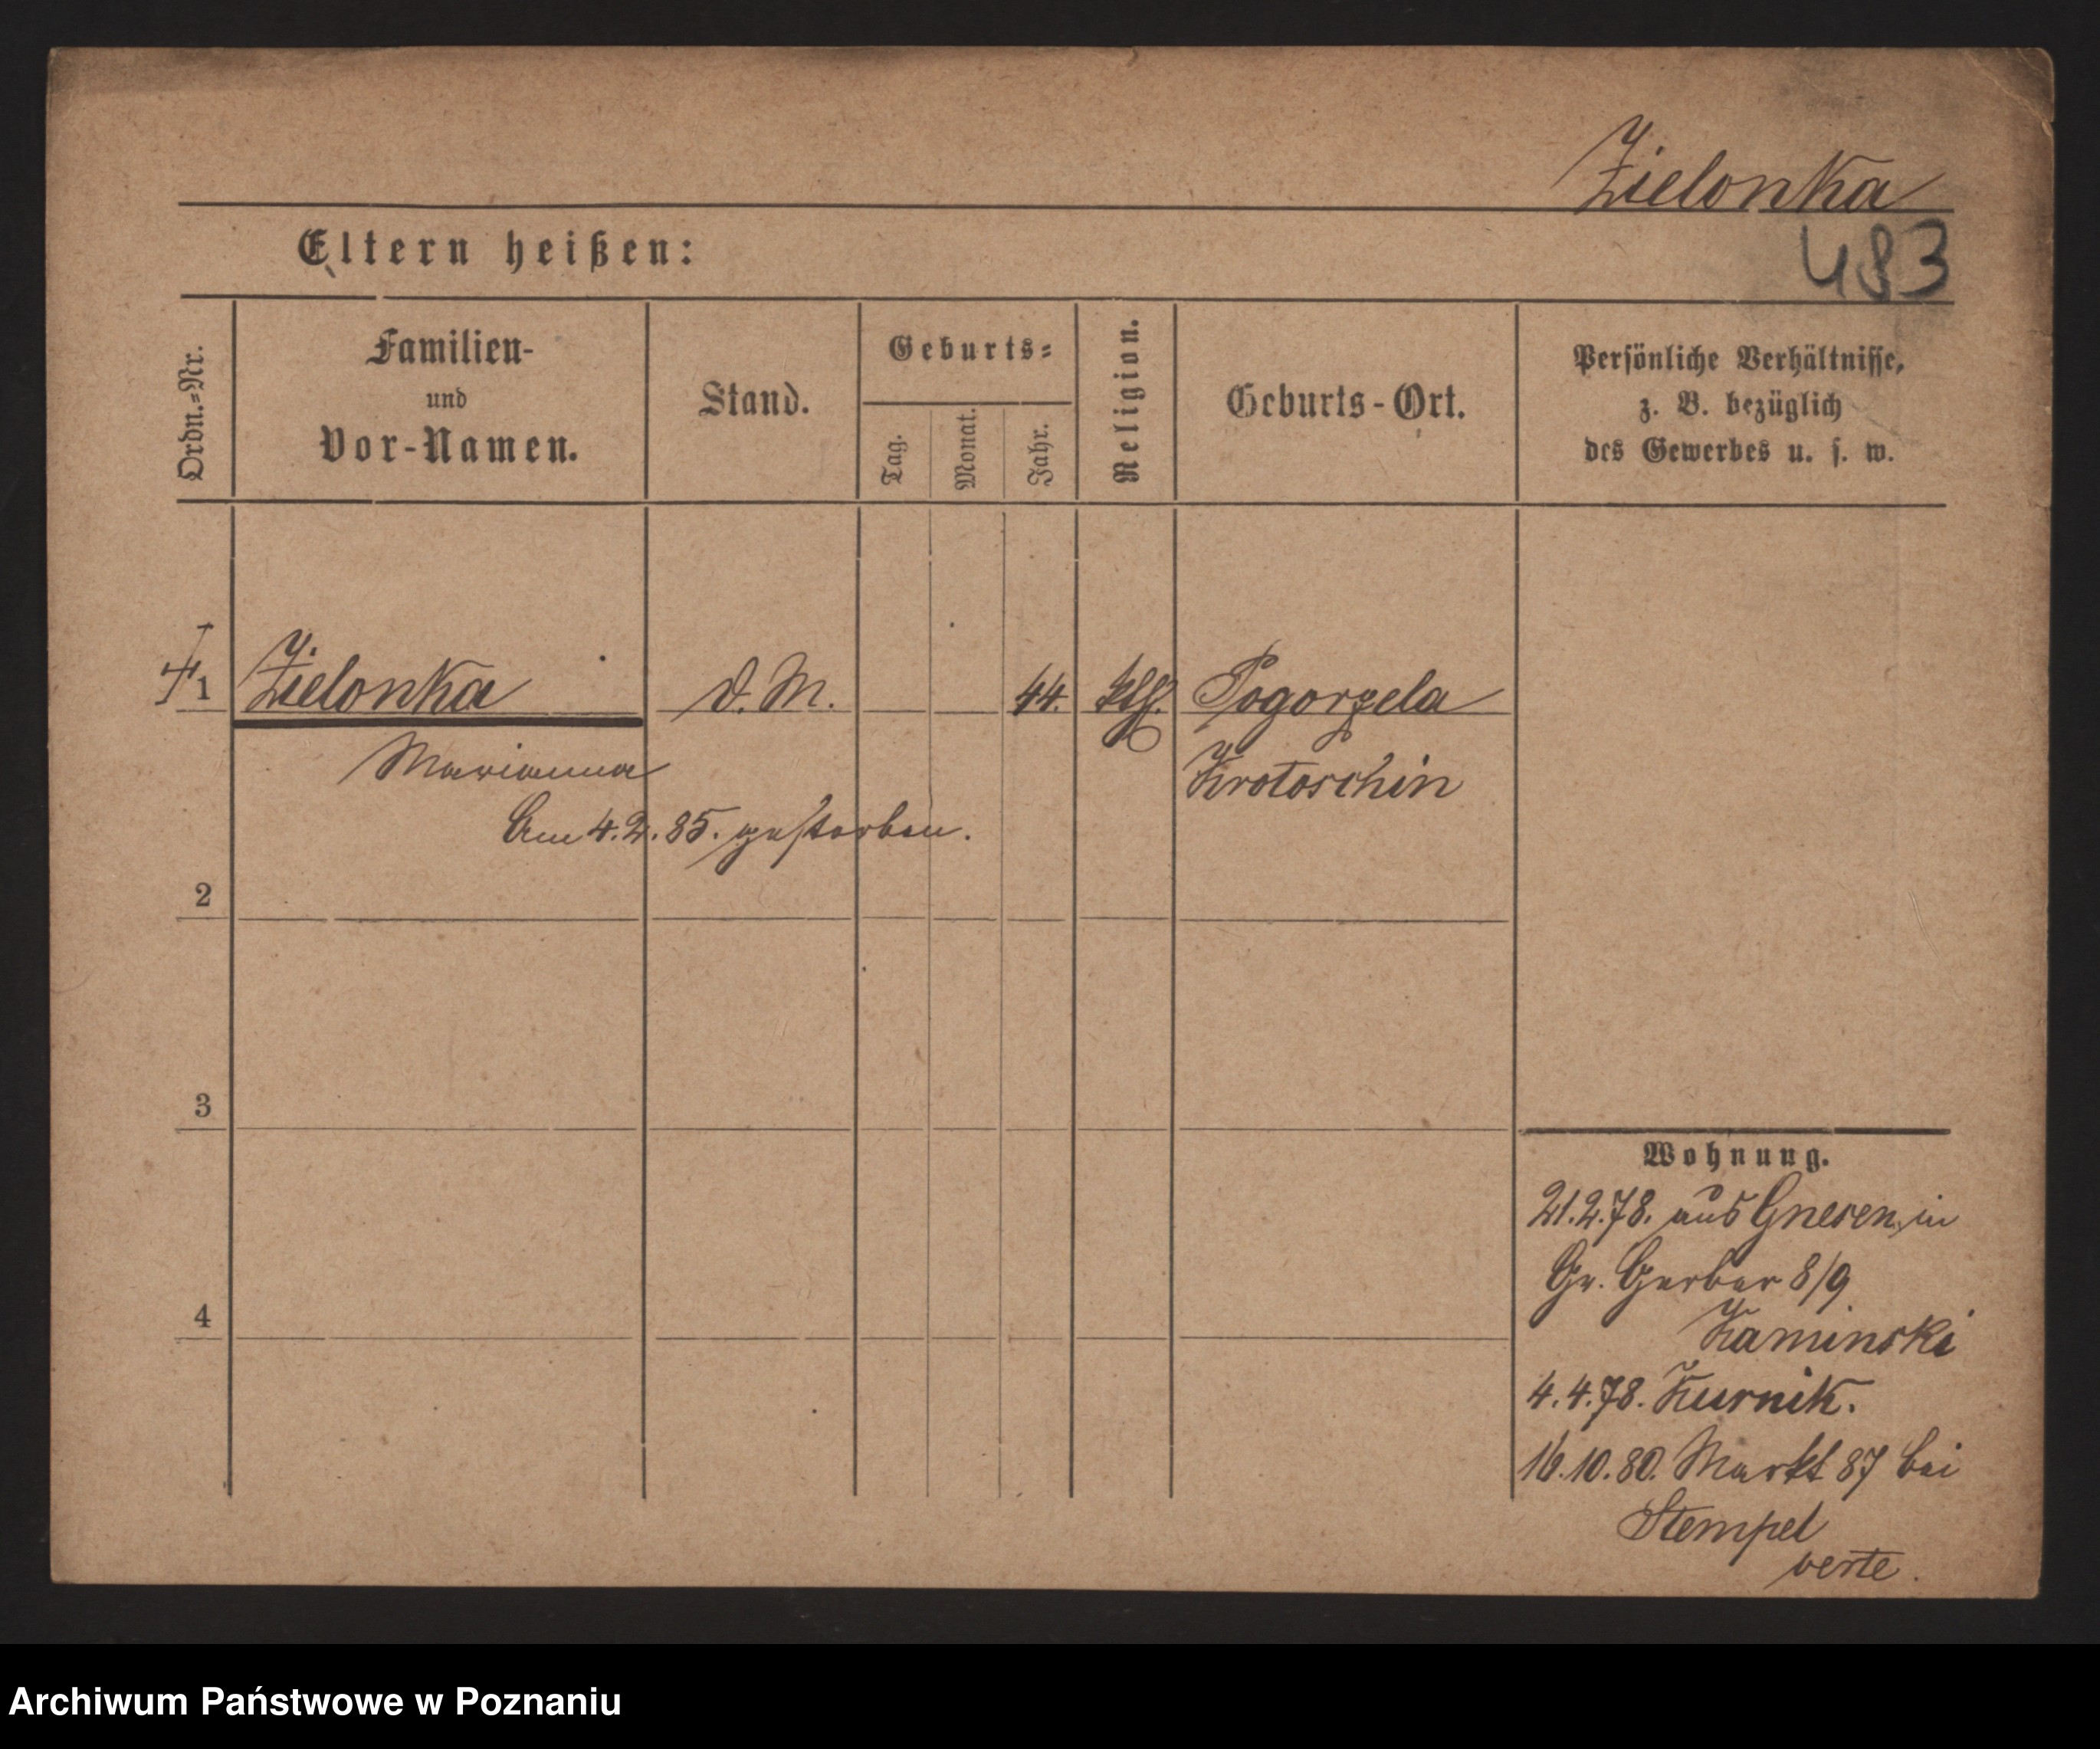 Zielonka
483
Eltern heißen:
Ordn.-Nr.
Familien-
und
Vor-Namen.
Stand.
Geburts-
Tag.
Monat.
Jahr.
Religion.
Geburts-Ort.
Persönliche Verhältnisse,
z. B. bezüglich
des Gewerbes u. s. w.
1 Zielonka D. M. 44. kth. Pogorzela
Marianna Krotoschin
Am 4.2.85. gestorben.
2
3
4
Wohnung.
21.2.78. aus Gnesen, in
Gr. Gerber 8/9
Kaminski
4.4.78. Kurnik.
16.10.80. Markt 87 bei
Stempel
verte.
Archiwum Państwowe w Poznaniu